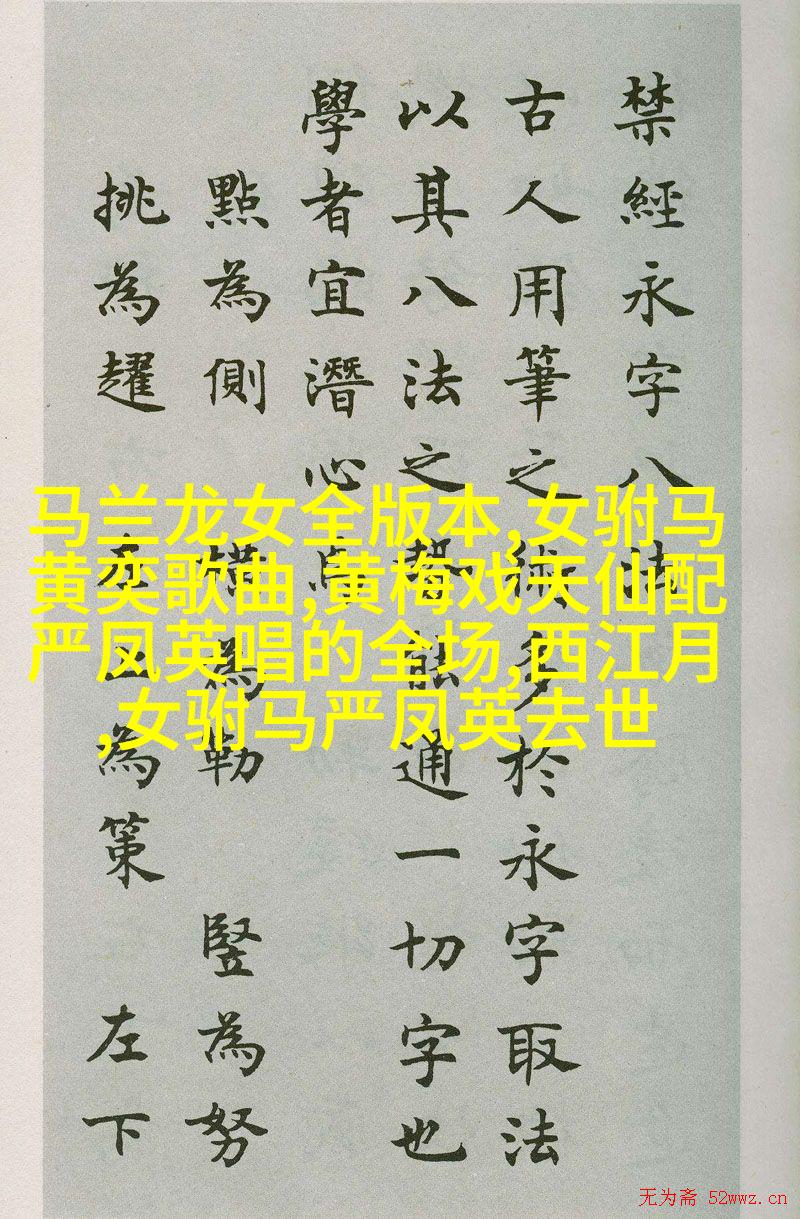 禁經永字八法
古人用筆之術多於永字取法
以其八法之勢能通一切字也
學者宜潛心焉
點為側 橫為勒 豎為努
挑為趯 左上為策 左下
马兰龙女全版本,女驸马
黄奕歌曲,黄梅戏天仙配
严凤英唱的全场,西江月
,女驸马严凤英去世
无为斋 52wwz.cn